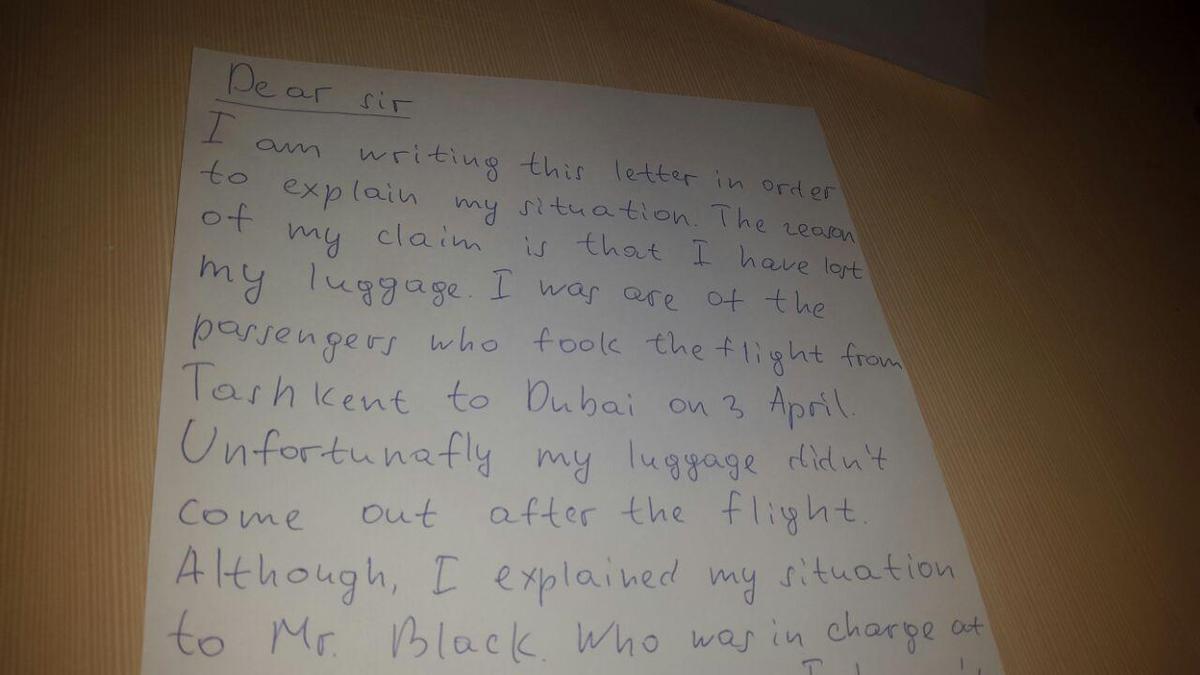 Dear sir
I am writing this letter in order
to explain my situation. The reason
of my claim is that I have lost
my luggage. I was are of the
passengers who fook the flight from
Tashkent to Dubai on 3 April.
Unfortunafly my luggage didn't
come out after the flight.
Although, I explained my situation
to Mr. Black. Who was in charge at